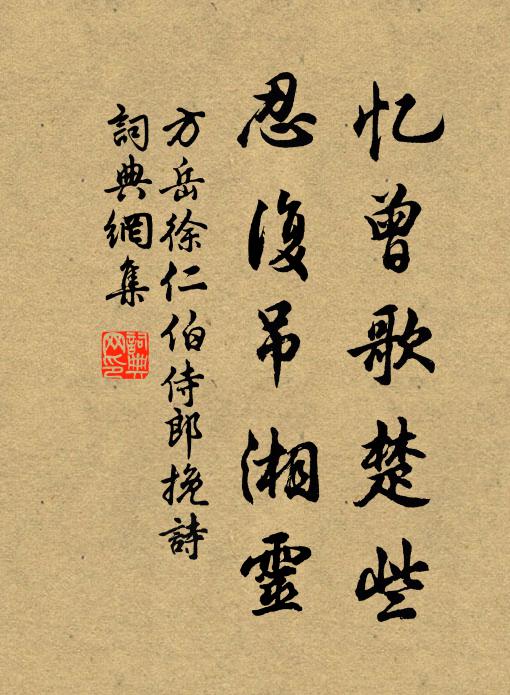 忆曾歌楚些
忍復吊湘靈
方岳徐仁伯侍郎挽詩
詞典網集
詞典網印